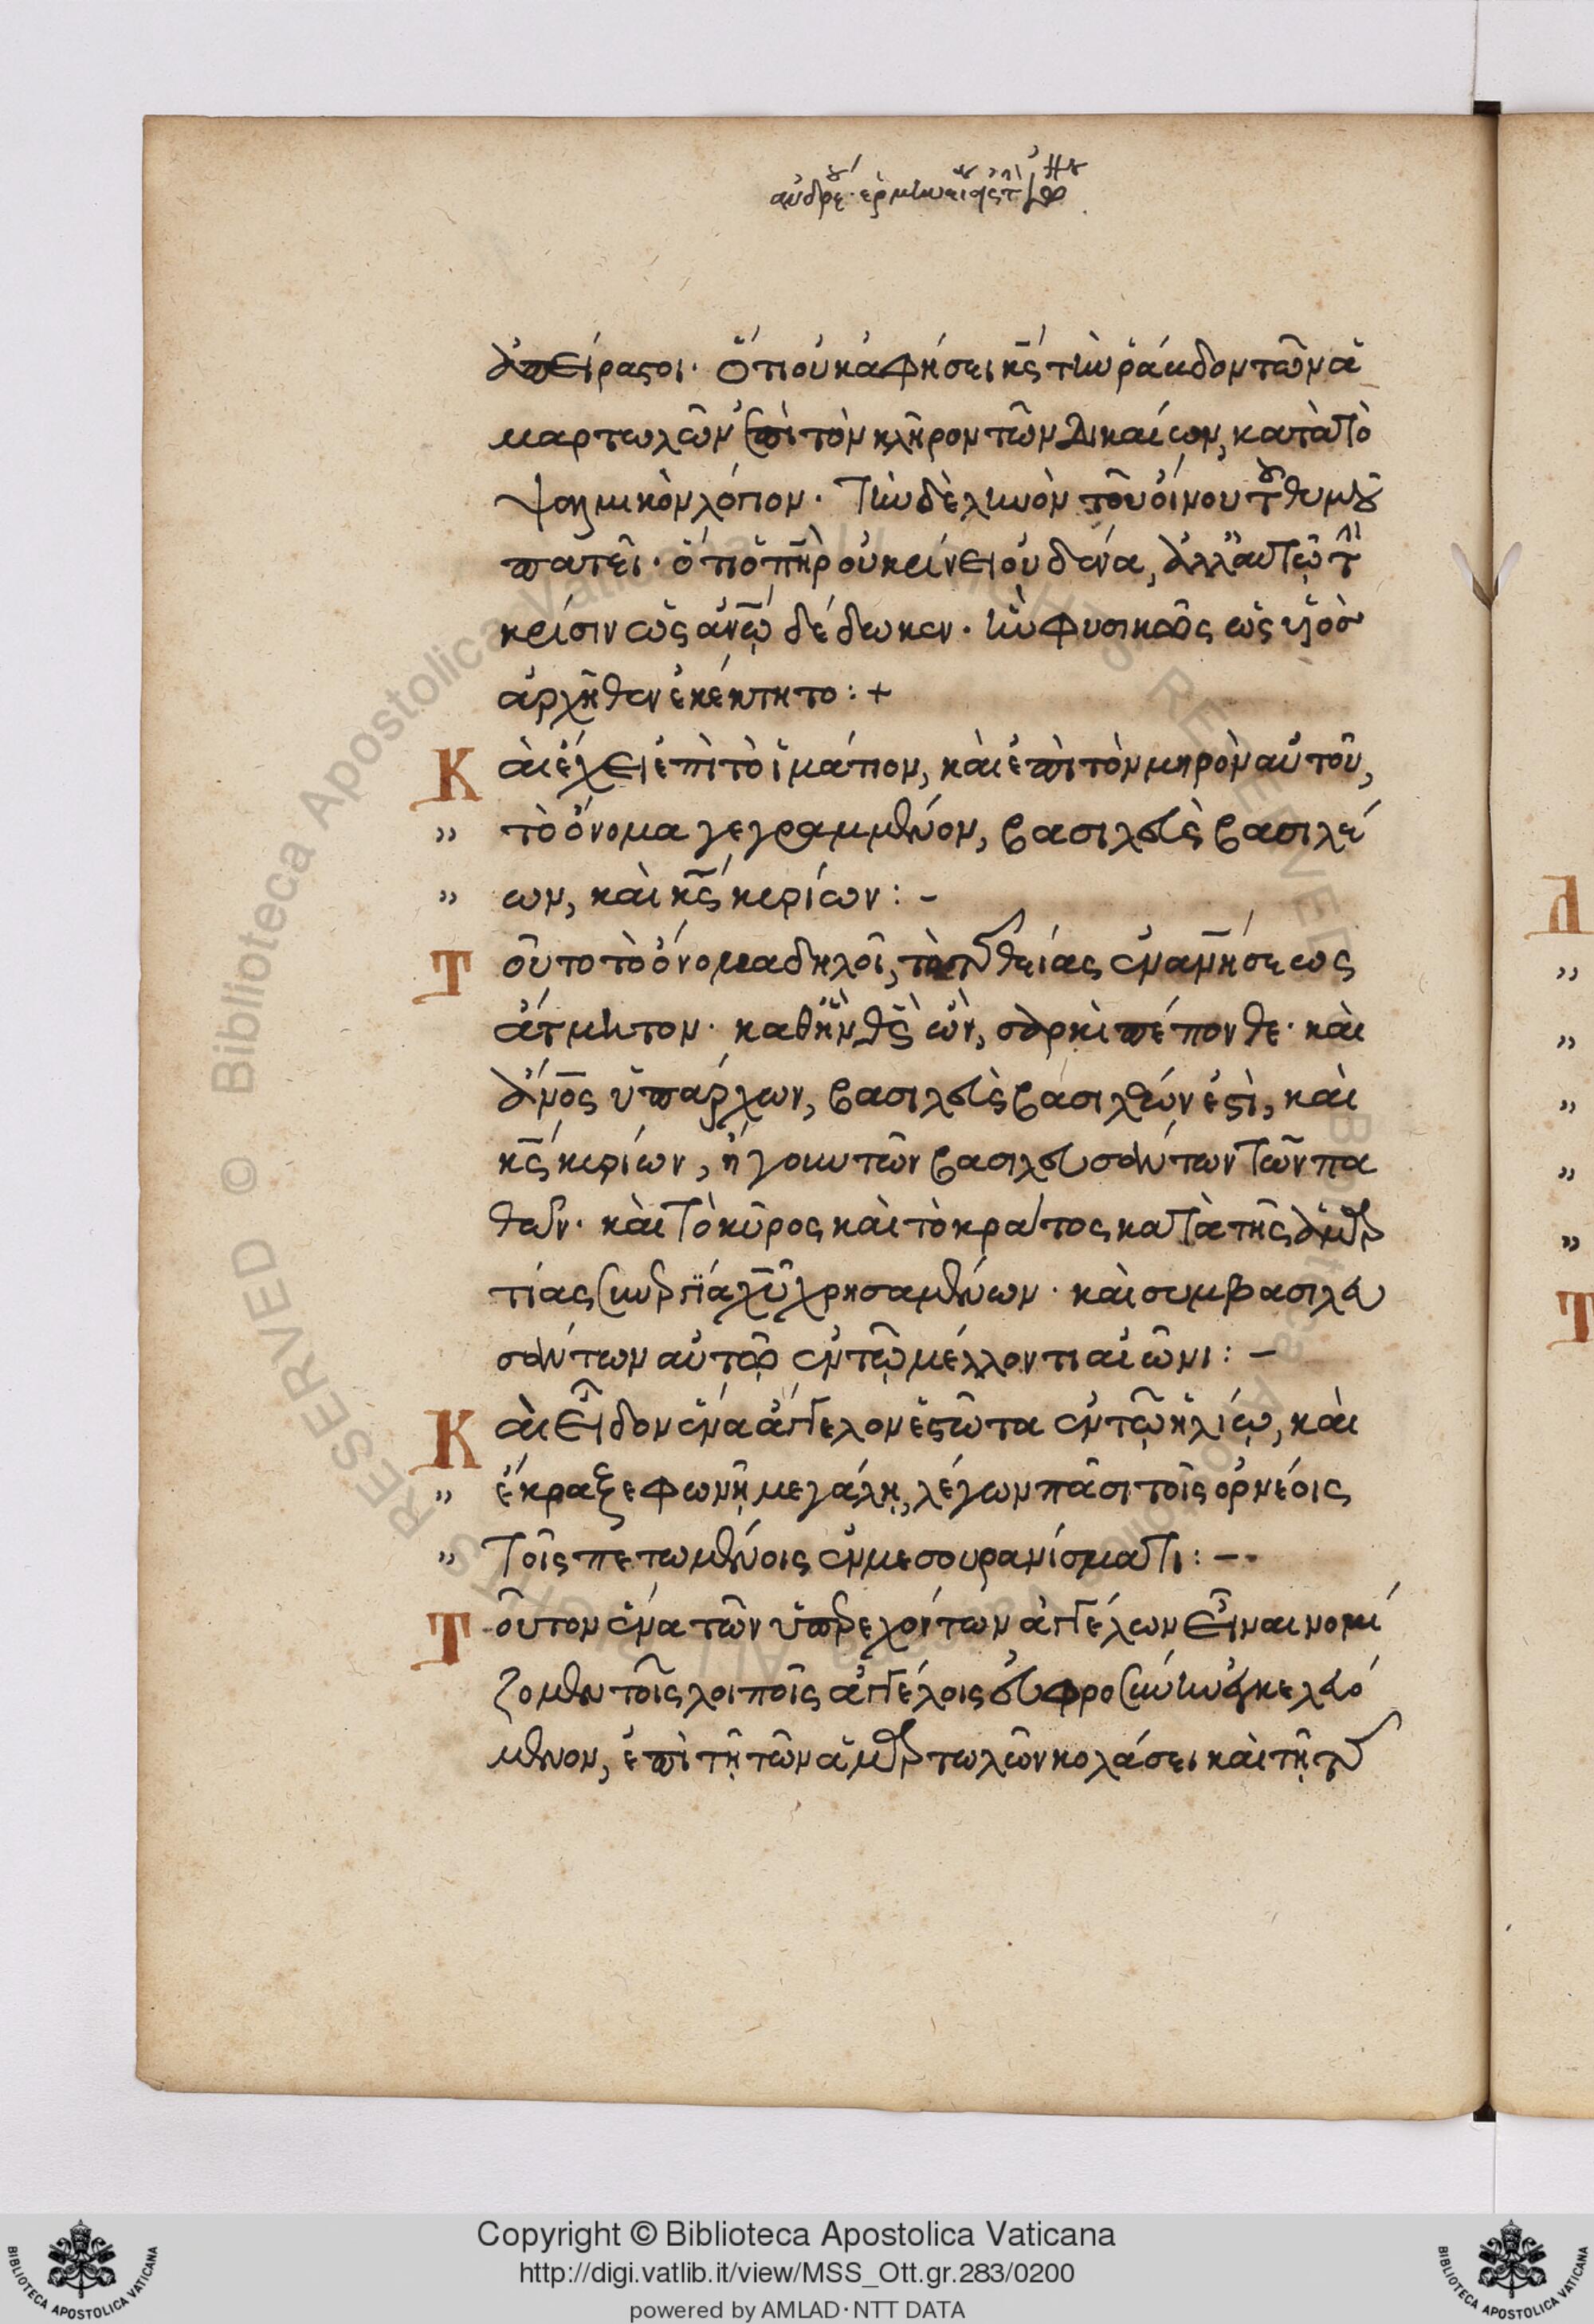 ἀπείραστοι. Ὅτι οὐκ ἀφήσει κ̅ς̅ τὴν ῥάβδον τῶν ἁ
μαρτωλῶν ἐπὶ τὸν κλῆρον τῶν δικαίων, κατὰ τὸ
ψαλμικὸν λόγιον. Τὴν δὲ ληνὸν τοῦ οἴνου τοῦ θυμοῦ
πατεῖ. ὅτι ὁ π̅η̅ρ̅ οὐ κρίνει οὐδένα, ἀλλ' αὐτῷ τὴν
κρίσιν ὡς ἀν̅ω̅ δέδωκεν. ἣν φυσικῶς ὡς υἱὸς
ἀρχῆθεν ἐκέκτητο : +
Καὶ ἔχει ἐπὶ τὸ ἱμάτιον, καὶ ἐπὶ τὸν μηρὸν αὐτοῦ,
" τὸ ὄνομα γεγραμμένον, βασιλεὺς βασιλέ
" ων, καὶ κ̅ς̅ κυρίων : -
Τοῦτο τὸ ὄνομα δηλοῖ, τὸ τῆς θείας ἐνανθρωπήσεως
ἄτμητον. καθ' ἣν θ̅ς̅ ὢν, σαρκὶ πέπονθε. καὶ
ἄν̅ο̅ς̅ ὑπάρχων, βασιλεὺς βασιλέων ἐστὶ, καὶ
κ̅ς̅ κυρίων, ἤγουν τῶν βασιλευσάντων τῶν πα
θῶν. καὶ τὸ κῦρος καὶ τὸ κράτος κατὰ τῆς ἁμαρ
τίας συνεργίᾳ χ̅υ̅ χρησαμένων. καὶ συμβασιλευ
σόντων αὐτῷ ἐν τῷ μέλλοντι αἰῶνι : -
Καὶ εἶδον ἕνα ἄγγελον ἑστῶτα ἐν τῷ ἡλίῳ, καὶ
" ἔκραξε φωνῇ μεγάλῃ, λέγων πᾶσι τοῖς ὀρνέοις
" τοῖς πετωμένοις ἐν μεσουρανίσματι : -
Τοῦτον ἕνα τῶν ὑπερεχόντων ἀγγέλων εἶναι νομί
ζομεν τοῖς λοιποῖς ἀγγέλοις εὐφροσύνην ἐγκελευό
μενον, ἐπὶ τῇ τῶν ἁμαρτωλῶν κολάσει καὶ τῇ τῆς
Copyright © Biblioteca Apostolica Vaticana
http://digi.vatlib.it/view/MSS_Ott.gr.283/0200
powered by AMLAD·NTT DATA
BIBLIOTECA APOSTOLICA VATICANA
BIBLIOTECA APOSTOLICA VATICANA